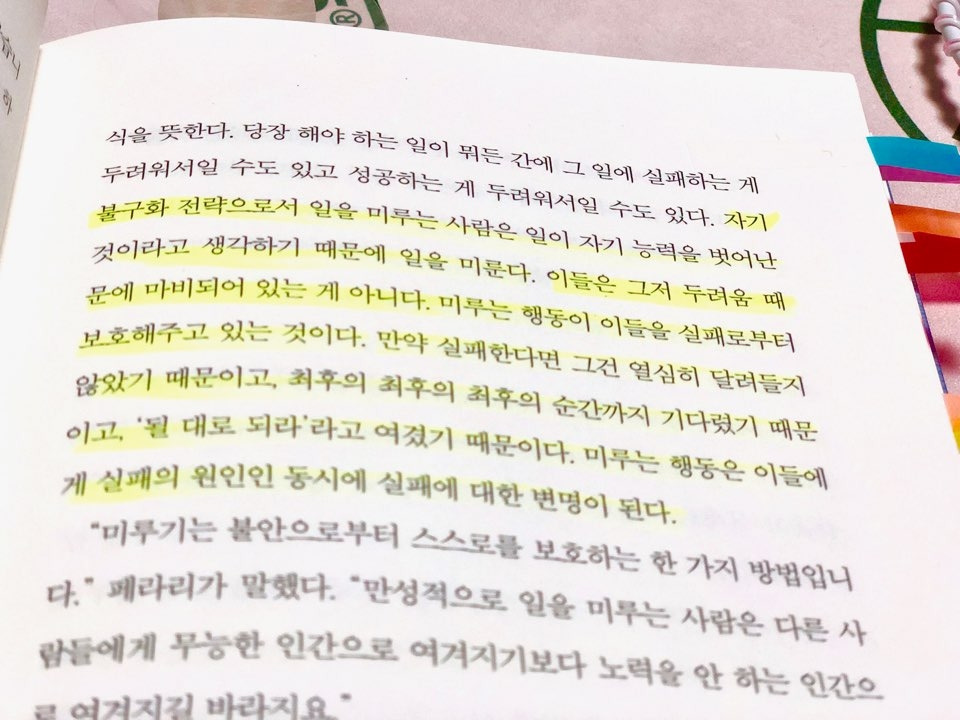 식을 뜻한다. 당장 해야 하는 일이 뭐든 간에 그 일에 실패하는 게
두려워서일 수도 있고 성공하는 게 두려워서일 수도 있다. 자기
불구화 전략으로서 일을 미루는 사람은 일이 자기 능력을 벗어난
것이라고 생각하기 때문에 일을 미룬다. 이들은 그저 두려움 때
문에 마비되어 있는 게 아니다. 미루는 행동이 이들을 실패로부터
보호해주고 있는 것이다. 만약 실패한다면 그건 열심히 달려들지
않았기 때문이고, 최후의 최후의 최후의 순간까지 기다렸기 때문
이고, ‘될 대로 되라’라고 여겼기 때문이다. 미루는 행동은 이들에
게 실패의 원인인 동시에 실패에 대한 변명이 된다.
“미루기는 불안으로부터 스스로를 보호하는 한 가지 방법입니
다.” 페라리가 말했다. “만성적으로 일을 미루는 사람은 다른 사
람들에게 무능한 인간으로 여겨지기보다 노력을 안 하는 인간으
로 여겨지길 바라지요.”